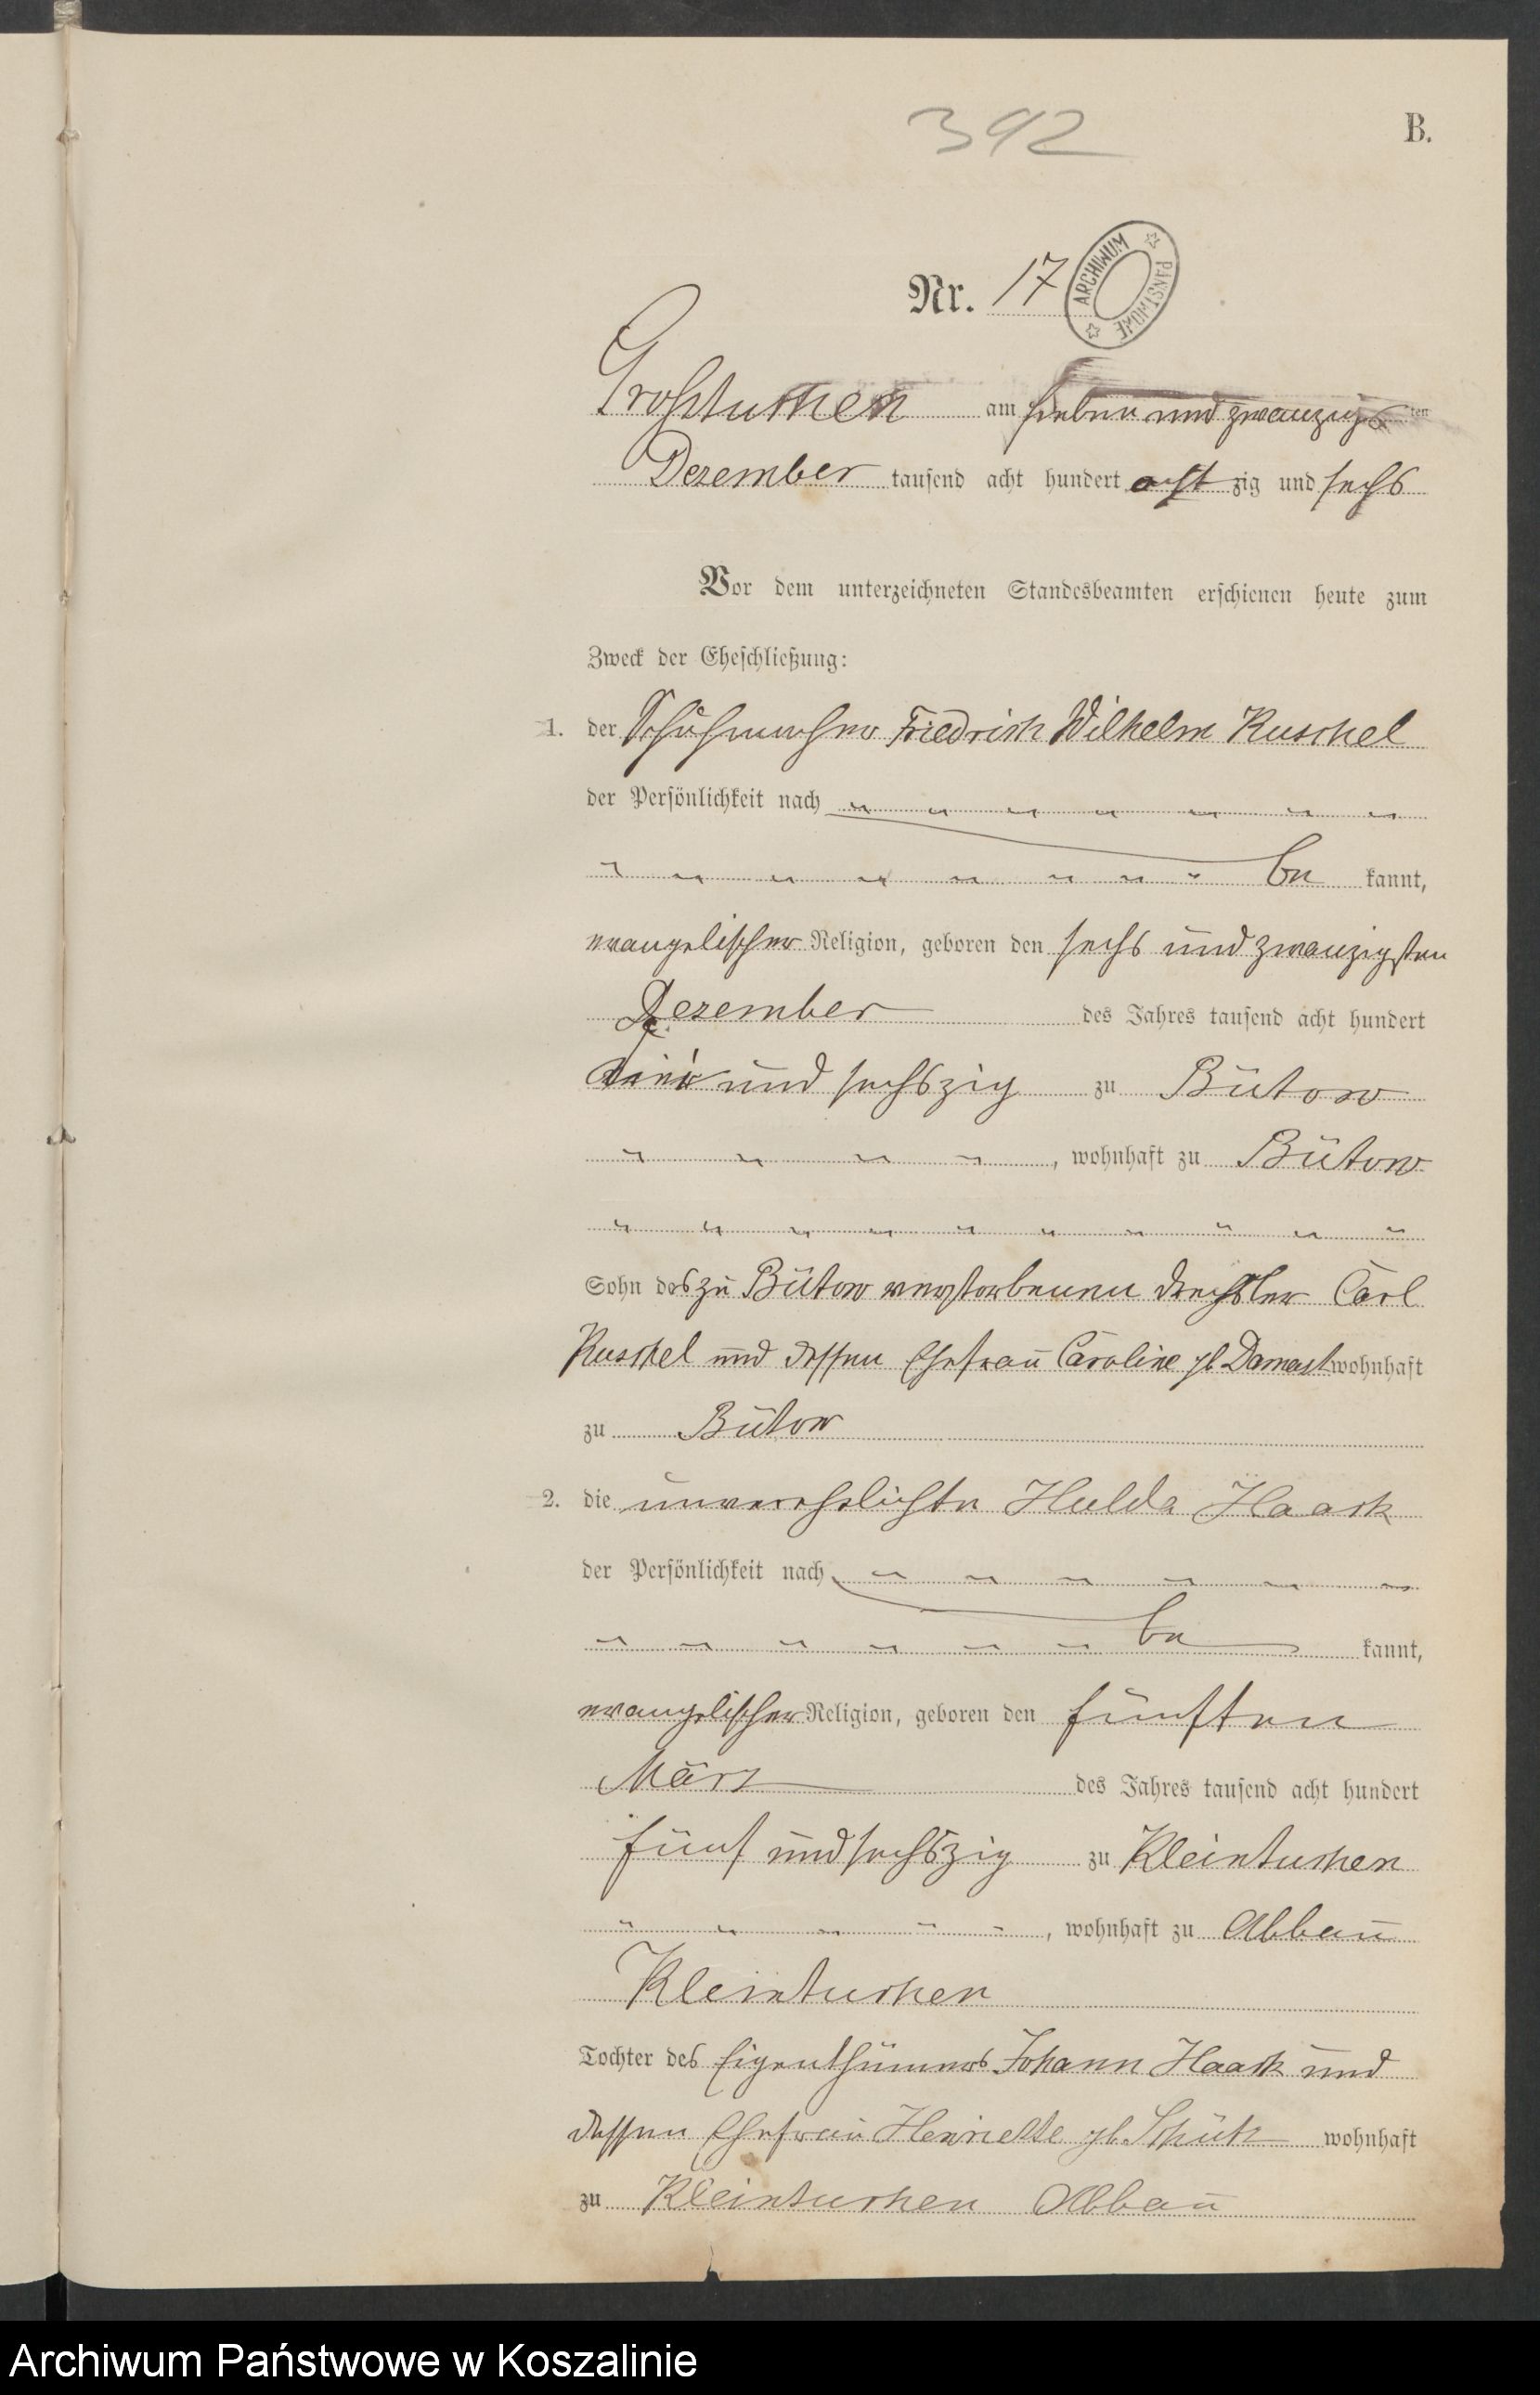 392
B.
Nr. 17
ARCHIWUM PAŃSTWOWE
Großtuchen am sieben und zwanzigsten
Dezember tausend acht hundert achtzig und sechs
Vor dem unterzeichneten Standesbeamten erschienen heute zum
Zweck der Eheschließung:
1. der Schuhmacher Friedrich Wilhelm Kuschel
der Persönlichkeit nach
be kannt,
evangelischer Religion, geboren den sechs und zwanzigsten
Dezember des Jahres tausend acht hundert
vier und sechszig zu Bütow
, wohnhaft zu Bütow
Sohn des zu Bütow verstorbenen Drechsler Carl
Kuschel und dessen Ehefrau Caroline gb wohnhaft
zu Bütow
2. die unverehelichte Hulda Haack
der Persönlichkeit nach
be kannt,
evangelischer Religion, geboren den fünften
März des Jahres tausend acht hundert
fünf und sechszig zu Kleintuchen
, wohnhaft zu Abbau
Kleintuchen
Tochter des Eigenthümers Johann Haack und
dessen Ehefrau Henriette gb. wohnhaft
zu Kleintuchen Abbau
Archiwum Państwowe w Koszalinie